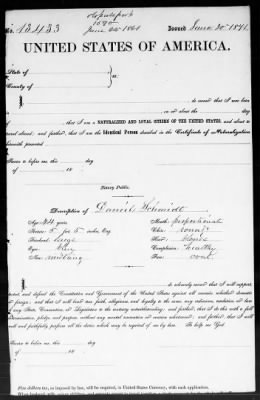 No. 13433
Issued June 30 1871
UNITED STATES OF AMERICA.
State of
County of
ss.
do swear that I am born
on or about the day
of
, that I am a NATURALIZED AND LOYAL CITIZEN OF THE UNITED STATES, and about to
travel abroad; and further, that I am the Identical Person described in the Certificate of Naturalization
herewith presented.
Sworn to before me, this day
of 18
Notary Public.
Description of Daniel Schmidt
Age: 34 years
Mouth: proportionate
Stature: 5 feet 5 inches, Eng.
Chin: round
Forehead: large
Hair: blonde
Eyes: 
Complexion: healthy
Nose: middling
Face: oval
I, do solemnly swear that I will support, protect
and defend the Constitution and Government of the United States against all enemies, whether domestic
or foreign; and that I will bear true faith, allegiance, and loyalty to the same, any ordinance, resolution or law
of any State, Convention, or Legislature to the contrary notwithstanding; and further, that I do this with a full
determination, pledge, and purpose, without any mental reservation or evasion whatsoever; and further, that I will
well and faithfully perform all the duties which may be required of me by law. So help me God.
Sworn to before me, this day
of 18
Five dollars tax, as imposed by law, will be required, in United States Currency, with each application.